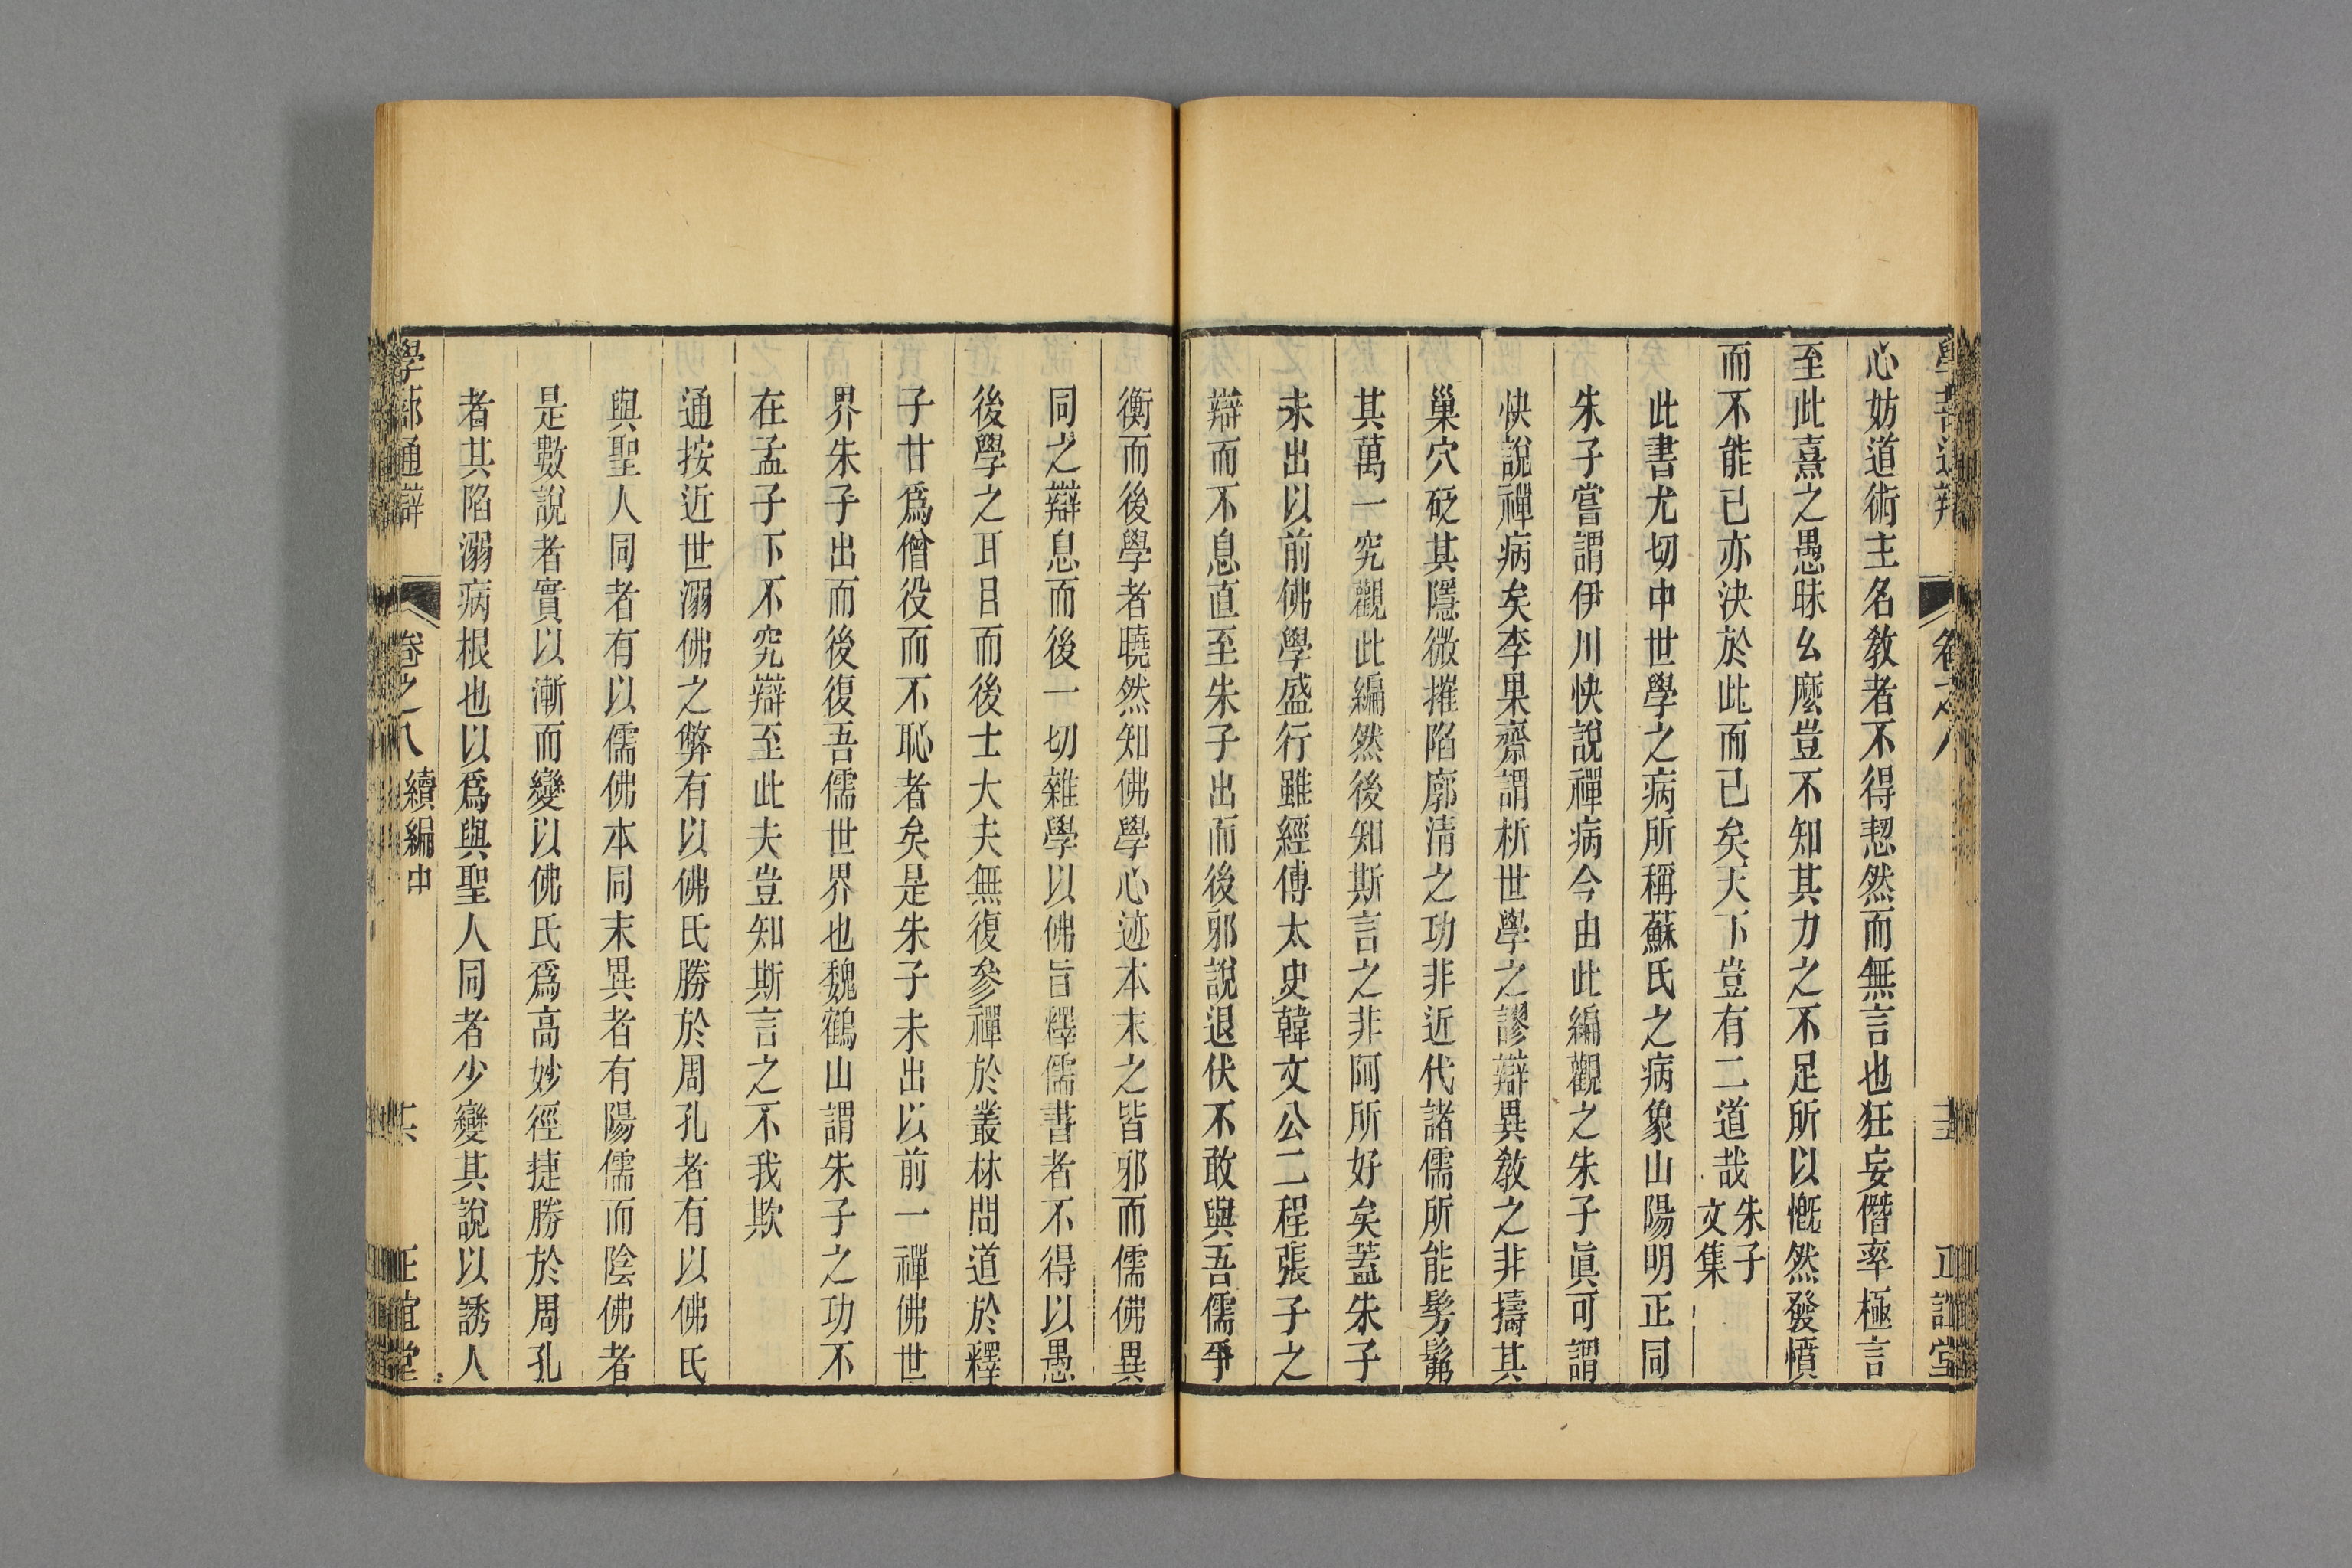 心妨道術主名教者不得恝然而無言也狂妄僭率極言
至此熹之愚昧幺麽豈不知其力之不足所以慨然發憤
而不能已亦決於此而已矣天下豈有二道哉朱子文集
此書尤切中世學之病所稱蘇氏之病象山陽明正同
朱子嘗謂伊川快說禪病今由此編觀之朱子眞可謂
快說禪病矣李果齋謂析世學之謬辯異教之非擣其
巢穴砭其隱微摧陷廓清之功非近代諸儒所能髣髴
其萬一究觀此編然後知斯言之非阿所好矣蓋朱子
未出以前佛學盛行雖經傅太史韓文公二程張子之
辯而不息直至朱子出而後邪說退伏不敢與吾儒爭
衡而後學者曉然知佛學心迹本末之皆邪而儒佛異
同之辯息而後一切雜學以佛旨釋儒書者不得以愚
後學之耳目而後士大夫無復參禪於叢林問道於釋
子甘爲僧役而不恥者矣是朱子未出以前一禪佛世
界朱子出而後復吾儒世界也魏鶴山謂朱子之功不
在孟子下不究辯至此夫豈知斯言之不我欺
通按近世溺佛之弊有以佛氏勝於周孔者有以佛氏
與聖人同者有以儒佛本同末異者有陽儒而陰佛者
是數說者實以漸而變以佛氏爲高妙徑捷勝於周孔
者其陷溺病根也以爲與聖人同者少變其說以誘人
學蔀通辯 卷之八 續編中 正誼堂